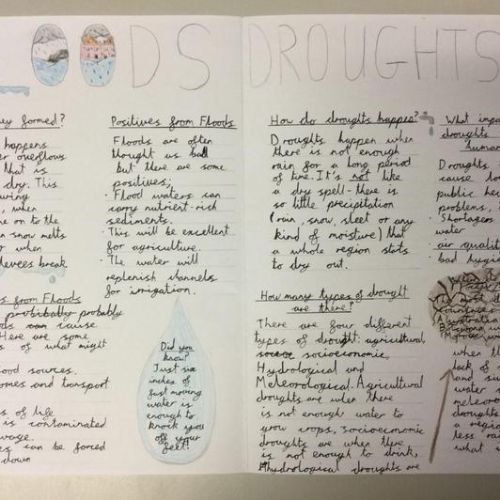 LOODS
ey formed?
happens
er overflows
that is
dry. This
uring
, when
me on to the
n snow melts
when
levees break.
es from Floods
probibably probably
ds can cause
Here are some
s of what might
ood sources.
omes and transport
s of life
is contaminated
wage.
es can be forced
down
Positives from Floods
Floods are often
thought as bad
but there are some
positives;
· Flood waters can
carry nutrient-rich
sediments.
· This will be excellent
for agriculture.
· The water will
replenish channels
for irrigation.
Did you
know?
Just six
inches of
fast moving
water is
enough to
knock you
off your
feet!
DROUGHTS
How do droughts happen?
Droughts happen when
there is not enough
rain for a long period
of time. It's not like
a dry spell-there is
so little precipitation
(rain, snow, sleet or any
kind of moisture) that
a whole region stats
to dry out.
How many types of drought
are there?
There are four different
types of drought: agricultural,
socioeconomic,
Hydrological and
Meteorological. Agricultural
droughts are when there
is not enough water to
grow crops, socioecomonic
droughts are when there
is not enough to drink,
Hydrological droughts are
What impa
droughts
human
Droughts
cause lo
public he
problems,
· Shortages
water
· air quality
· bad hygie
The most
when
lack of
and su
water i
meteorol
droughts
a region
less ra
what i